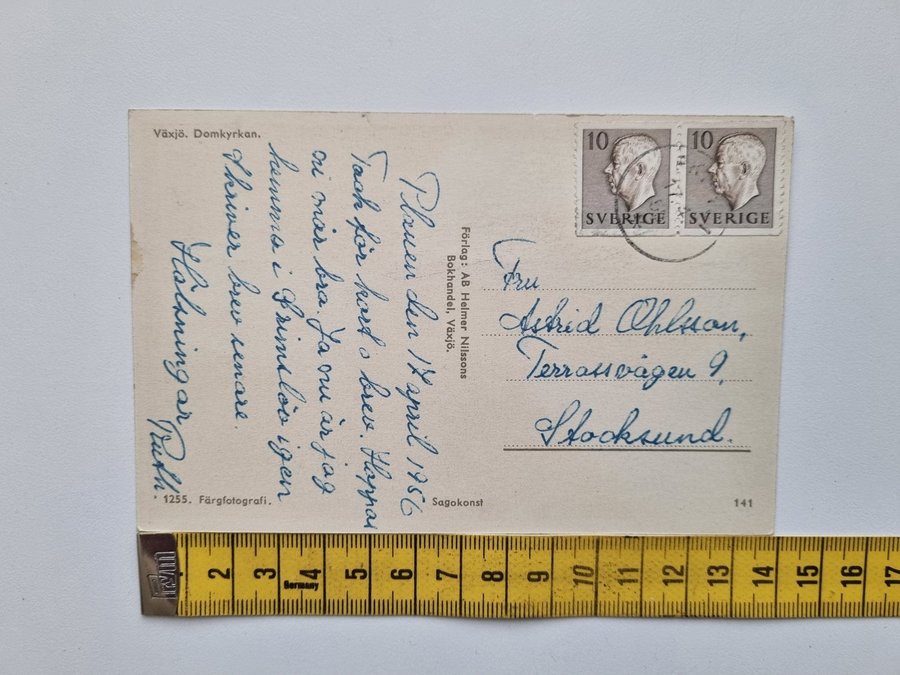 Växjö. Domkyrkan.
den 17 april 1956
Tack för kort o brev. Hoppas
ni mår bra. Ja nu är jag
hemma i Grimslöv igen
Skriver brev senare.
Hälsningar
Ruth
1255. Färgfotografi.
Förlag: AB Helmer Nilssons
Bokhandel, Växjö.
Sagokonst
10
SVERIGE
10
SVERIGE
Fru
Astrid Ohlsson,
Terrassvägen 9,
Stocksund.
141
2 3 4 5 6 7 8 9 10 11 12 13 14 15 16 17
Germany